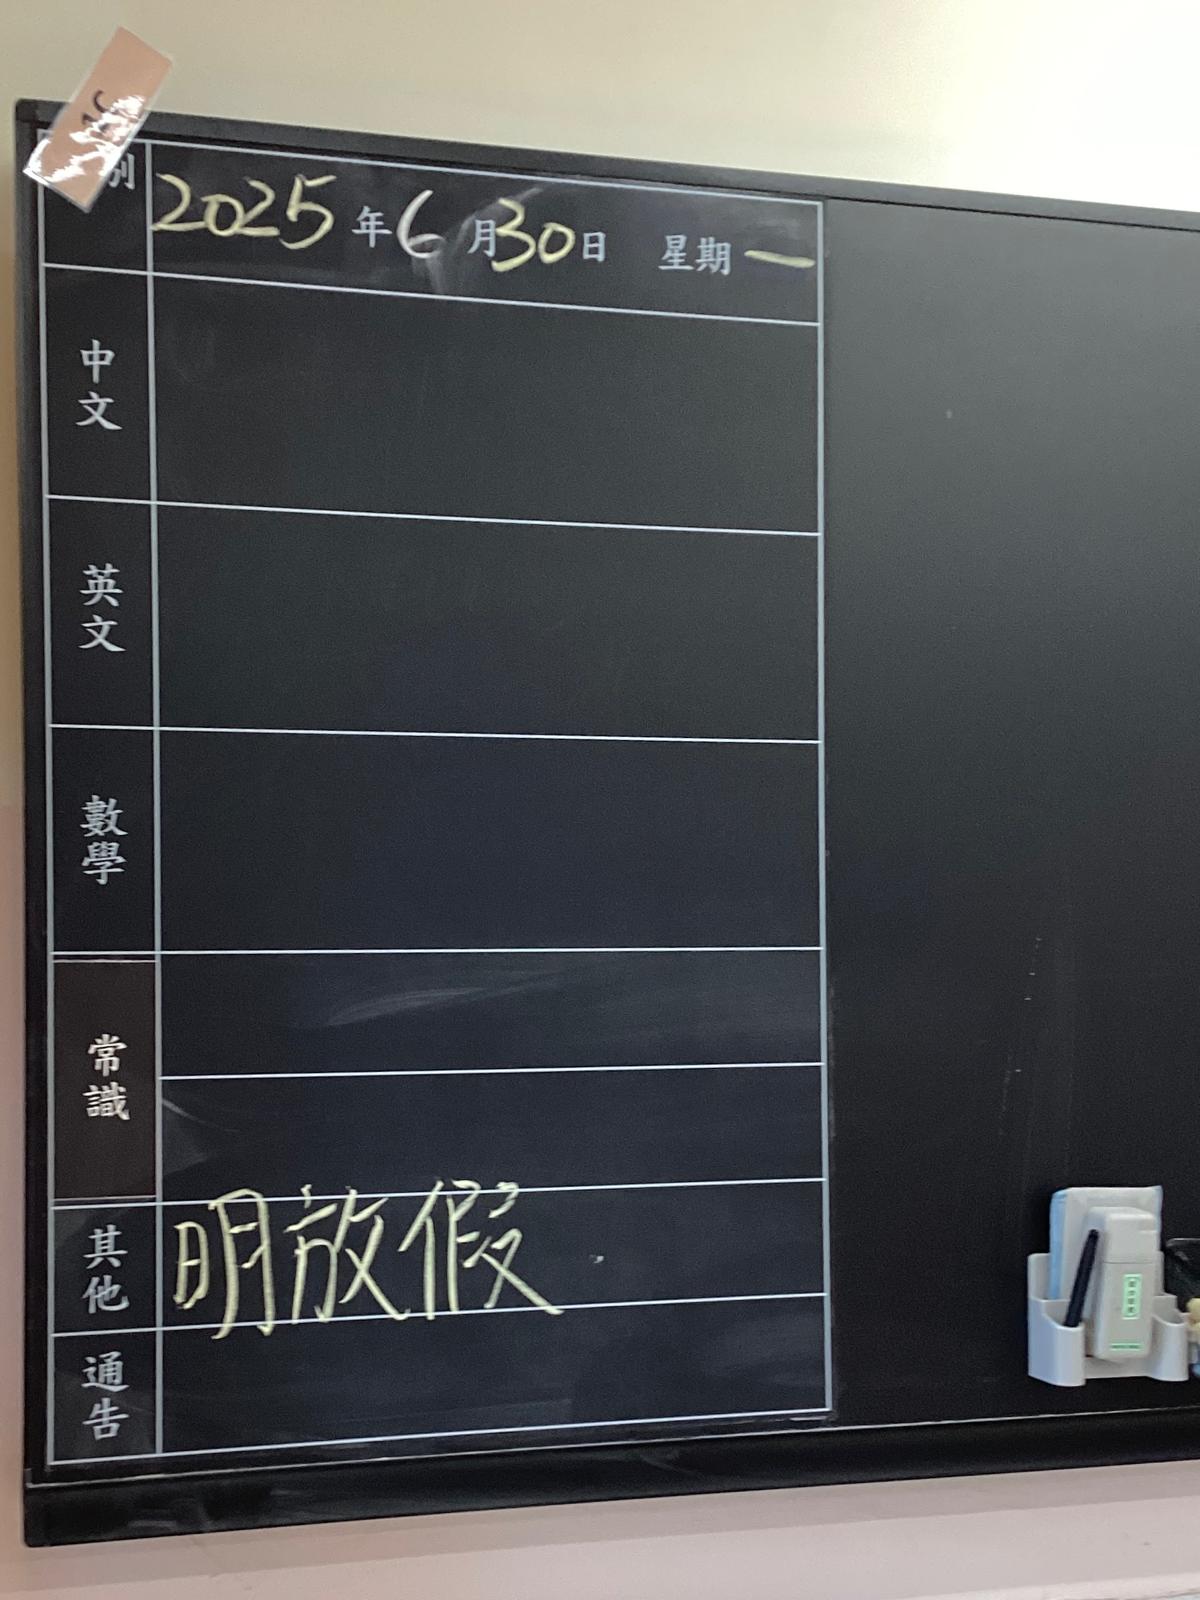 1C
別
2025年6月30日 星期一
中文
英文
數學
常識
其他 明放假
通告